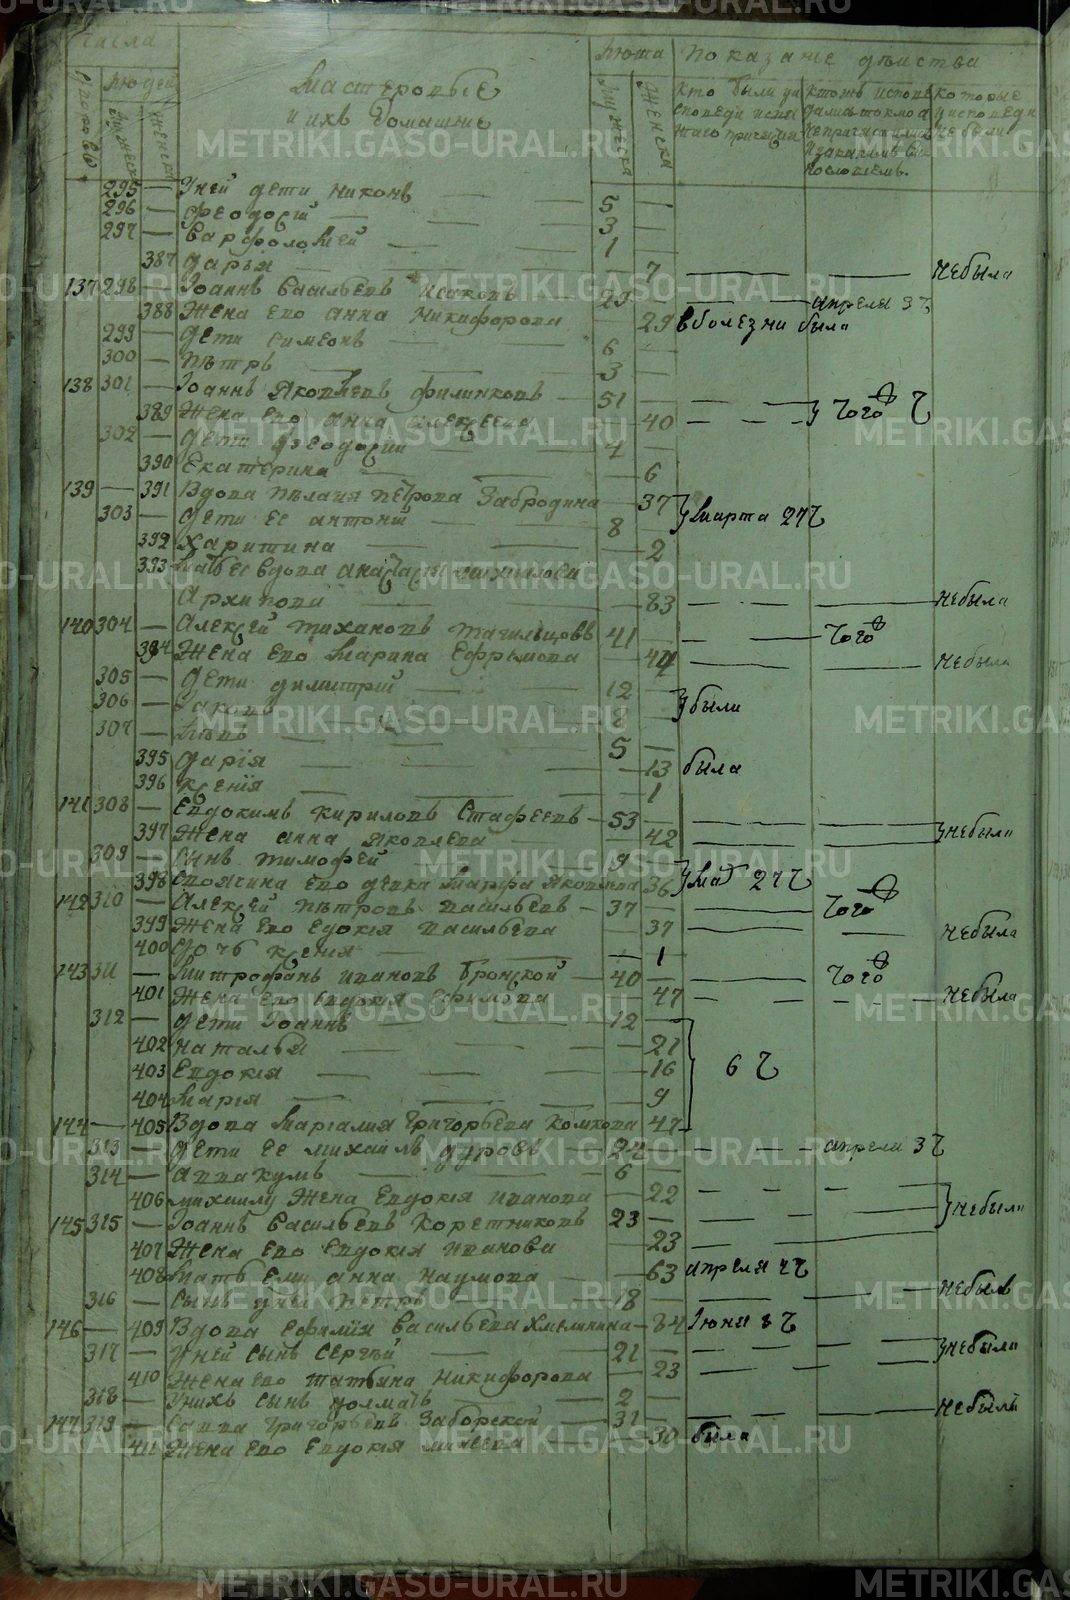 числа
дворовъ
людей
мужеска
женска
Мастеровые
и ихъ домашніе
люта
мужеска
женска
показание действа
кто были у исповеди и святаго причастия
кто жъ исповедались токмо а не причастились
которые у исповеди не были
295 — У ней дети Никонъ — 5
296 — Феодосій — 3
297 — Варфоломей — 1
387 Дарья — 7 — небыла
137 298 — Іоаннъ Васильевъ Исаковъ — 29 — апреля 3 ч
388 Жена ево Анна Никифорова — 29 в болезни была
299 — Дети Симеонъ — 6
300 — Петръ — 3
138 301 — Іоаннъ Яковлевъ Филинковъ — 51 — того ч
389 Жена ево Анна Алексеева — 40
302 — Дети Феодосий — 4
390 Екатерина — 6
139 — 391 Вдова Пелагия Петрова Забродина — 37 марта 27 ч
303 — Дети ее Антоній — 8
392 Харитина — 2
393 Мать ее вдова Анастасія Михайлова
Архипова — 83 — небыла
140 304 — Алексей Тихановъ Тагильцовъ 41 — того
394 Жена ево Марина Ефремова — 44 — небыла
305 — Дети Димитрій — 12
306 — Іаковъ — 8 были
307 — Левъ — 5
395 Дарія — 13 была
396 Ксенія — 1
141 308 — Евдокимъ Кириловъ Стафеевъ — 53
397 Жена Анна Яковлева — 42 — небыли
309 — Сынъ Тимофей — 9
398 Своячина ево девка Марфа Яковлева 36 мар 27 ч
142 310 — Алексей Петровъ Васильевъ — 37 — того
399 Жена ево Евдокія Васильева — 37 — небыла
400 Дочь Ксенія — 1
143 311 — Митрофанъ Ивановъ Бронской — 40 — того
401 Жена ево Евдокія Ефимова — 47 — небыла
312 — Дети Іоаннъ — 12
402 Наталья — 21
403 Евдокія — 16 6 ч
404 Марія — 9
144 — 405 Вдова Маргалия Григорьева Комкова 47
313 — Дети ее Михаилъ Дуровъ — 24 — апреля 3 ч
314 — Аввакумъ — 6
406 Михаилу жена Евдокія Иванова — 22
145 315 — Іоаннъ Васильевъ Коретниковъ 23 — небыли
407 Жена ево Евдокія Иванова — 23
408 Мать ему Анна Наумова — 63 апреля 4 ч
316 — Сынъ у ней Петръ — 18 — небылъ
146 — 409 Вдова Ефимія Васильева Хмелинина — 84 Іюни 8 ч
317 — У ней сынъ Сергей — 21 — небыли
410 Жена ево Татьяна Никифорова — 23
318 — У нихъ сынъ Долматъ — 2
147 319 — Савва Григорьевъ Заборской — 31 — небылъ
411 Жена ево Евдокія Матвеева — 30 была
METRIKI.GASO-URAL.RU